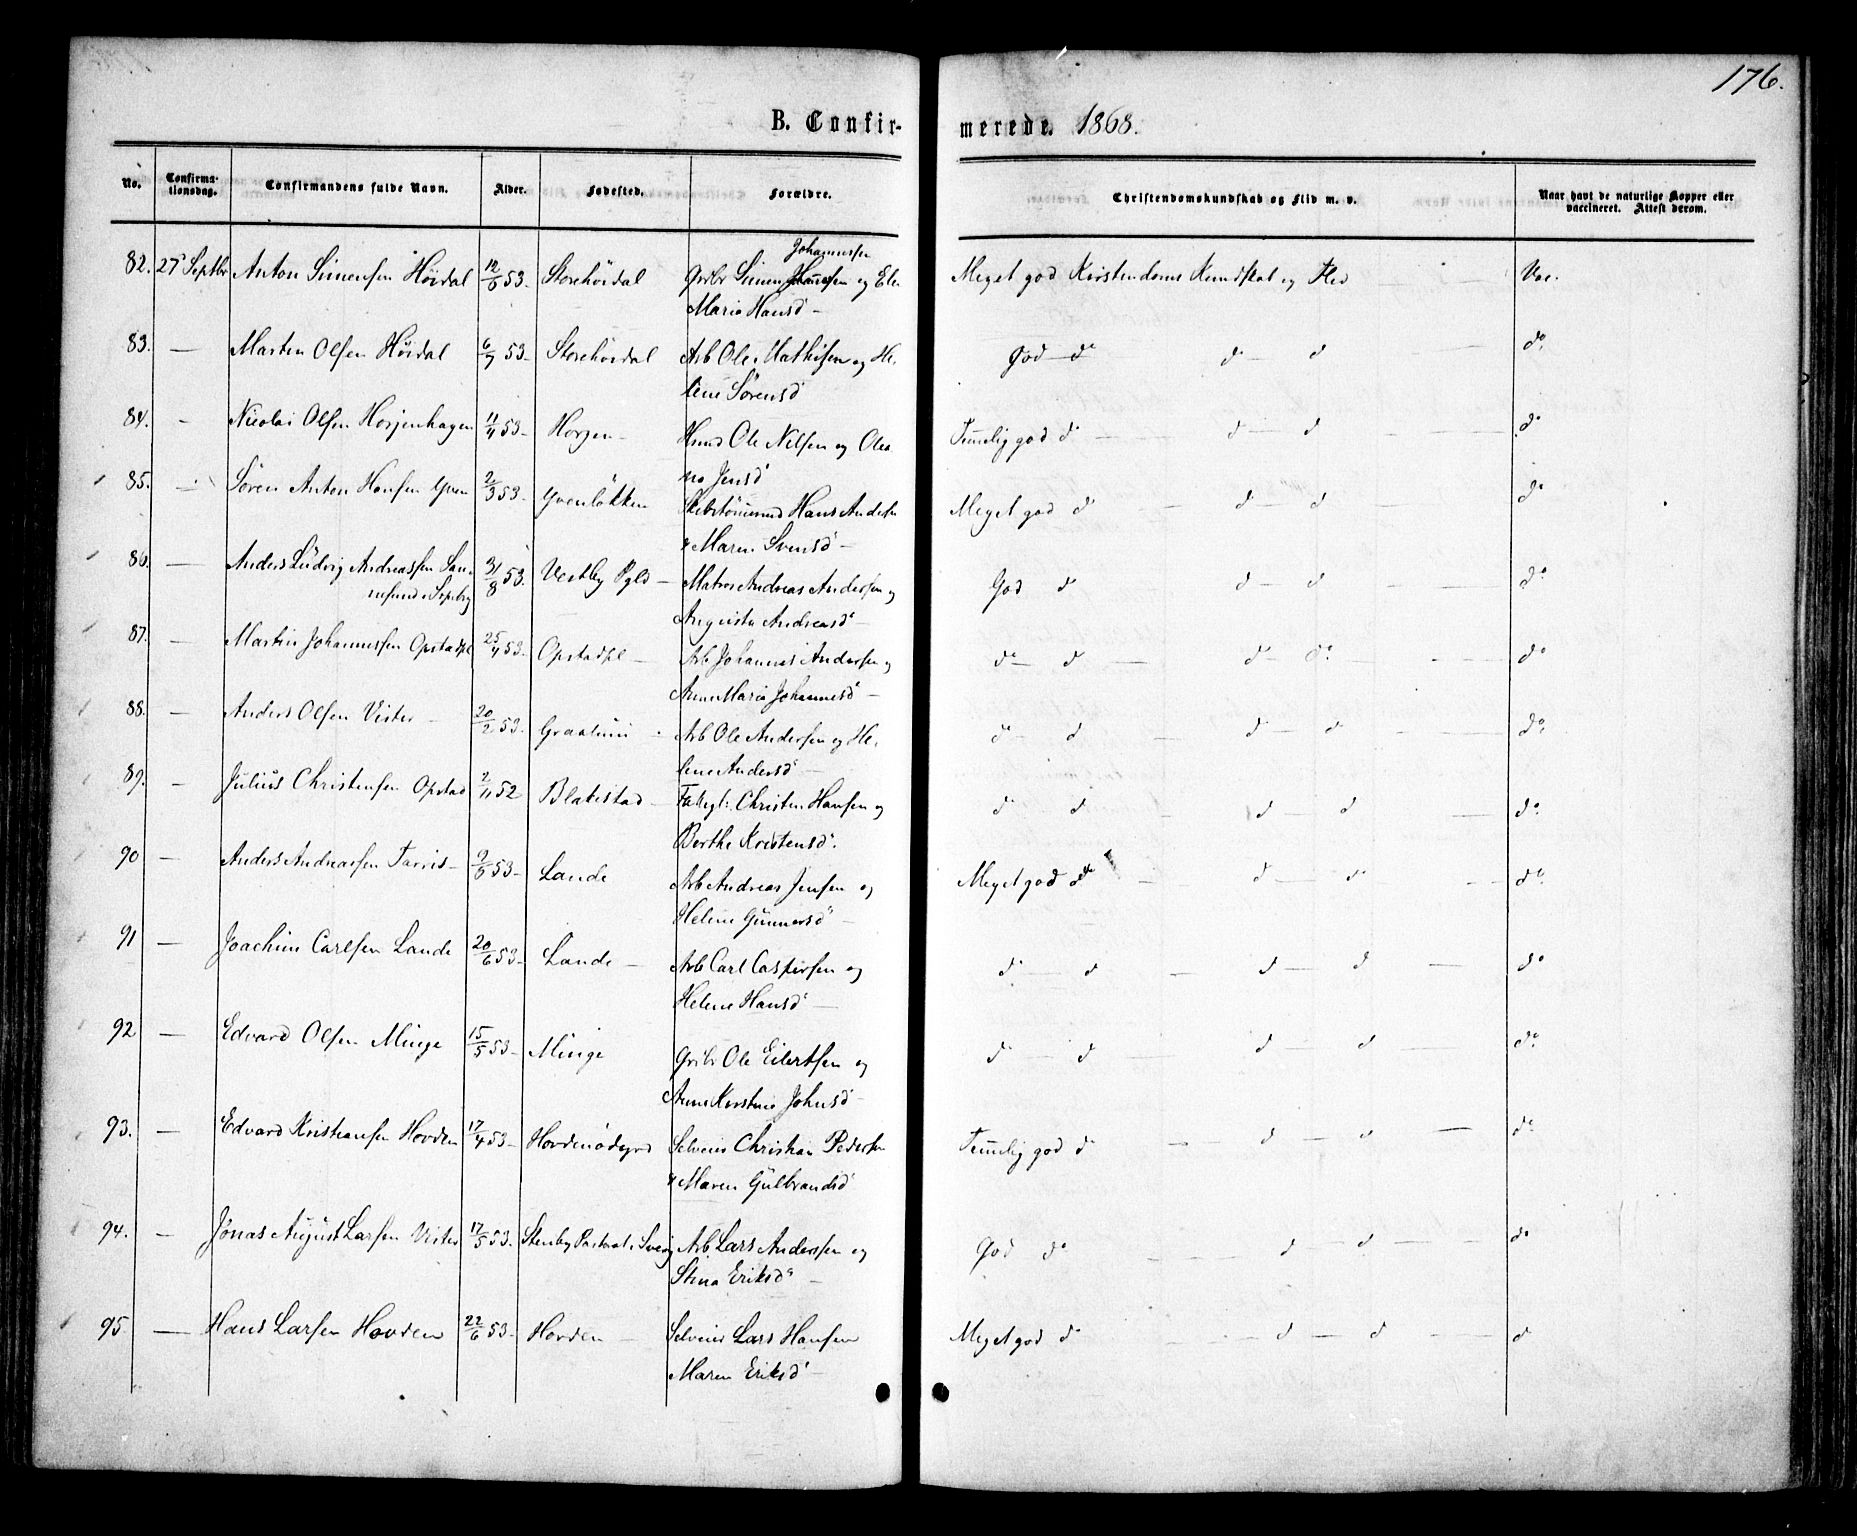 176.
B. Confir-
merede. 1868.
No. Confirmationsdag. Confirmandens fulde Navn. Alder. Fødested. Forældre. Christendomskundskab og Flid m. v. Naar havt de naturlige Kopper eller vaccineret. Attest derom.
82. 27 Septbr Anton Simensen Höidal 12/6 53. Storehöidal Grbr Simen Johannesen og Elen Meget god Kristendoms Kundskab og Flid Vac.
Maria Hansd –
83. — Martin Olsen Höidal 6/7 53. Storehöidal Arb Ole Mathisen og He- God — do d d do
lene Sörensd
84. - Nicolai Olsen Horjenhagen 11/4 53 Horjen - Husmd Ole Nilsen og Olea Temelig god do d d do
na Jensd
85. — Sören Anton Hansen Yven 2/3 53 Yvenlökken Skibstömmmd Hans Anders Meget god d d d do
& Maren Svensd –
86. — Anders Ludvig Andreassen San- 31/8 53. Vestby Pgld – Matros Andreas Andersen og God do d d do
nesund i Sepsbrg Augusta Andreasd –
87. — Martin Johannesen Opstadpl 25/4 53. Opstadpl – Arb Johannes Andersen og do d d do do
Anne Maria Johannesd –
88. — Anders Olsen Vister – 20/2 53. Graalum Arb Ole Andersen og He- do d d d do
lene Andersd –
89. - Julius Christensen Opstad 2/11 52 Blakestad – Christen Hansen og do d d d do
Berthe Kristensd.
90 — Anders Andreasen Tarris – 9/6 53 Lande Arb Andreas Jensen og Meget god do d d do
Helene Gunnersd –
91 — Joachim Carlsen Lande 20/6 53 Lande – Arb Carl Caspersen og d d d d do
Helene Hansd –
92 — Edvard Olsen Minge 15/5 53 Minge Grbr Ole Eilertsen og do d d d do
Anne Kirstine Johnsd –
93. — Edvard Kristiansen Hovden 17/4 53 Hovdenödegrd Selveier Christian Pedersen Temelig god do d d do
& Maren Gulbrandsd
94. — Jonas August Larsen Vister 17/5 53. Stenby Pastorat i Sverig Arb. Lars Andersen og God do d d do
Stina Eriksd –
95. — Hans Larsen Hovden 22/6 53 Hovden – Selveier Lars Hansen Meget god do d d d
Maren Eriksd –